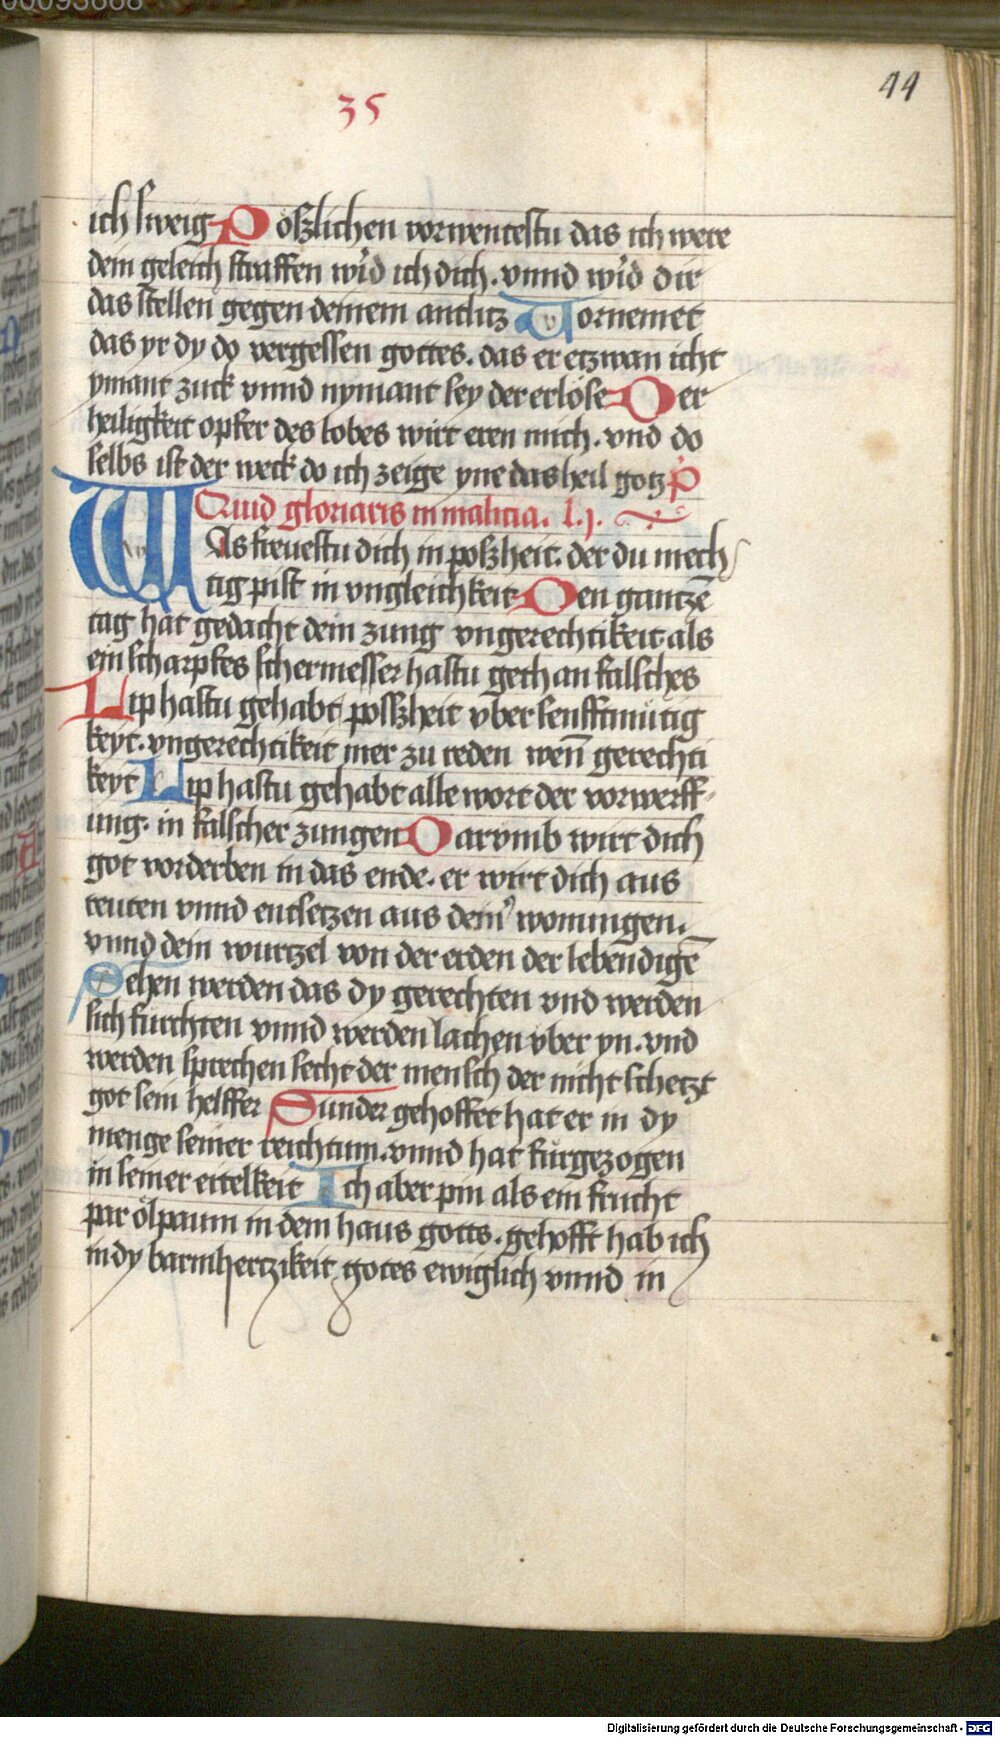 00093668
44
35
ich sweig Poßlichen vorwentestu das ich were
dem geleich straffen wird ich dich. vnnd wird dir
das stellen gegen deinem antlitz Vornemet
das yr dy do vergessen gottes. das er etzwan icht
ymant zuck vnnd nymant sey der erlöse Der
heiligkeit opfer des lobes wirt eren mich. vnd do
selbs ist der weck do ich zeige yne das heil gotz P
Quid gloriaris in malicia. l.j.
WAs freuestu dich in poßheit. der du mech
tig pist in vngleichkeit Den gantzē
tag hat gedacht dein zung vngerechtikeit als
ein scharpfes schermesser hastu gethan falsches
Lip hastu gehabt possheit vber senfftmütig
keyt. vngerechtikeit mer zu reden wen̄ gerechti
keyt Lip hastu gehabt alle wort der vorwerff
ung. in falscher zungen Darvmb wirt dich
got vorderben in das ende. er wirt dich aus
reuten vnnd entsetzen aus dein' wonungen.
vnnd dein wurtzel von der erden der lebendigē
Sehen werden das dy gerechten vnd werden
sich furchten vnnd werden lachen vber yn. vnd
werden sprechen secht der mensch der nicht schetzt
got sein helffer Sunder gehoffet hat er in dy
menge seiner reichtum. vnnd hat fürgezogen
in seiner eitelkeit Ich aber pin als ein frucht
par ölpaum in dem haus gotts. gehofft hab ich
in dy barmhertzikeit gotes ewiglich vnnd in
Digitalisierung gefördert durch die Deutsche Forschungsgemeinschaft - DFG